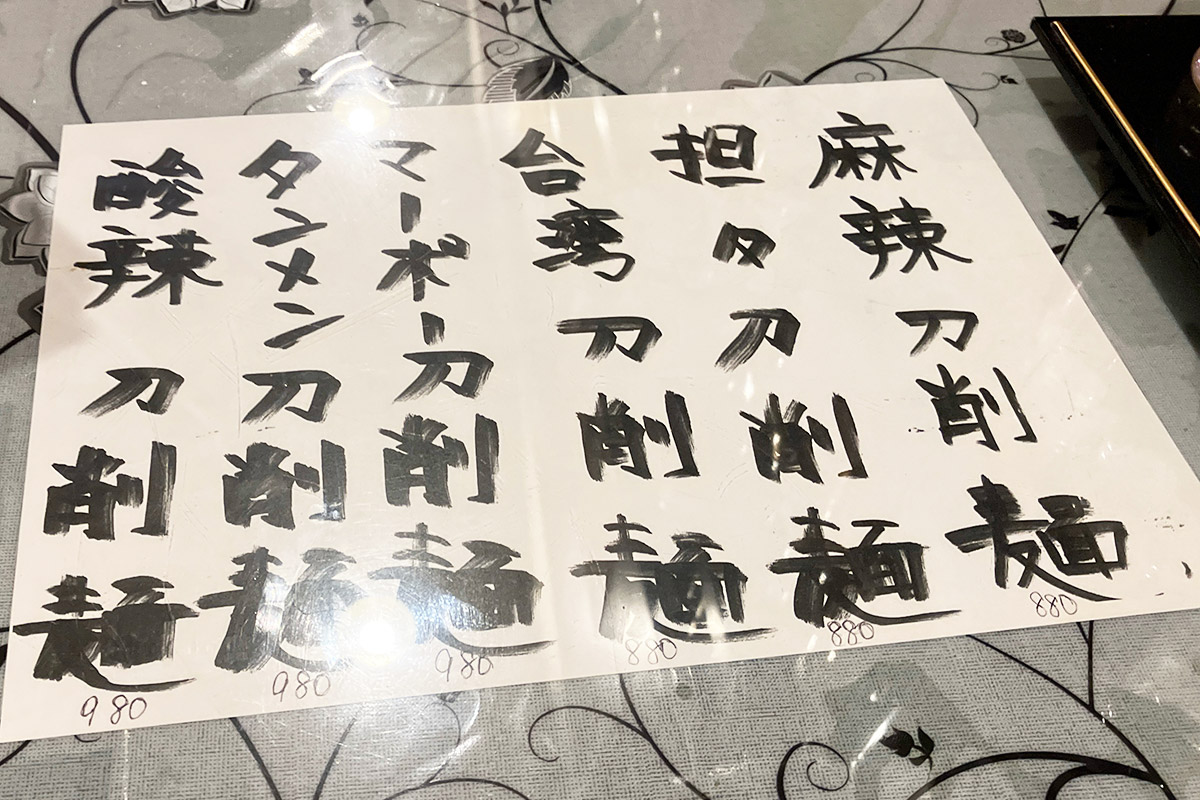 麻辣刀削麺
880
担々刀削麺
880
台湾刀削麺
880
マーボー刀削麺
980
タンメン刀削麺
980
酸辣刀削麺
980